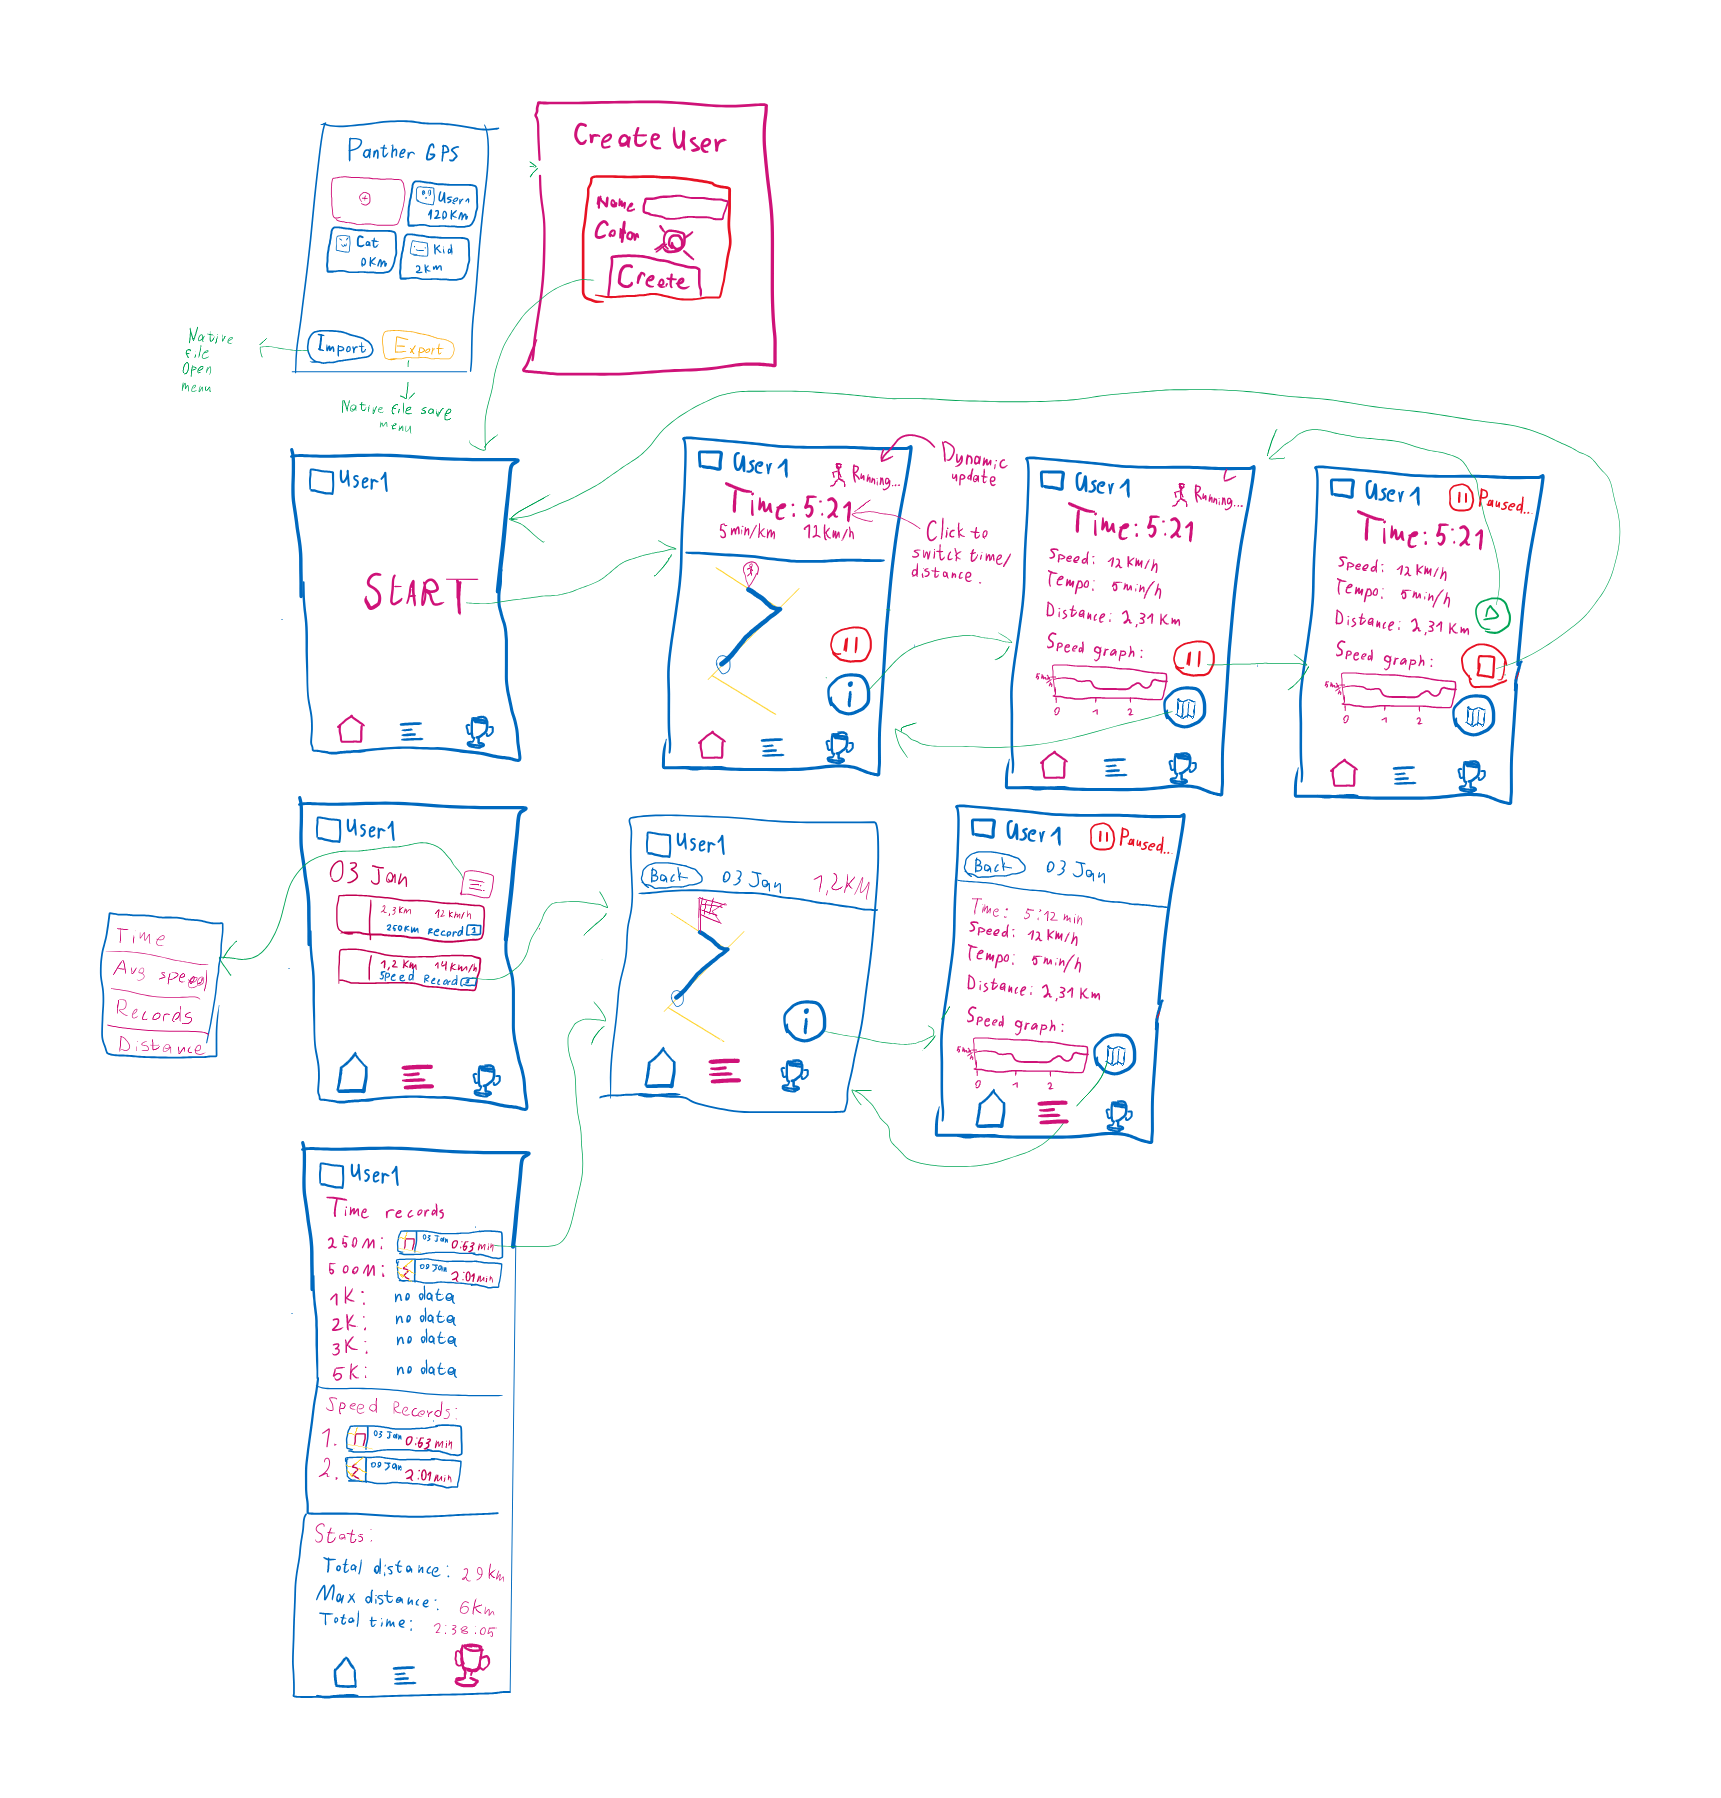 Panther GPS
User1
120Km
Cat
0Km
Kid
2Km
Import
Export
Native
file
Open
menu
Native file save
menu
Create User
Name
Color
Create
User1
START
User1
Running...
Time: 5:21
5min/km 12Km/h
Dynamic
update
Click to
switck time/
distance.
User1
Running...
Time: 5:21
Speed: 12 Km/h
Tempo: 5min/h
Distance: 2,31 Km
Speed graph:
0 1 2
User1
Paused...
Time: 5:21
Speed: 12 Km/h
Tempo: 5min/h
Distance: 2,31 Km
Speed graph:
0 1 2
User1
03 Jan
2,3Km 12Km/h
250Km record 1
1,2 Km 14Km/h
Speed Record 2
Time
Avg speed
Records
Distance
User1
Back 03 Jan 1,2KM
i
User1
Paused...
Back 03 Jan
Time: 5:12 min
Speed: 12 Km/h
Tempo: 5min/h
Distance: 2,31 Km
Speed graph:
0 1 2
User1
Time records
250M: 03 Jan 0:53 min
500M: 00 Jan 2:01min
1K: no data
2K: no data
3K: no data
5K: no data
Speed Records:
1. 03 Jan 0:53 min
2. 00 Jan 2:01min
Stats:
Total distance: 29km
Max distance: 6km
Total time: 2:38:05